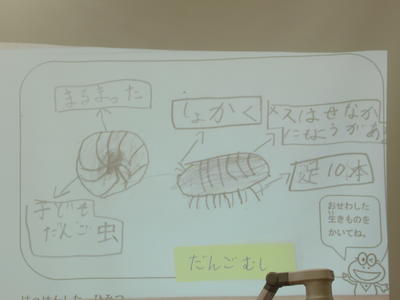 まるまった
しょかく
メスはせなか
にもようがあ
足10本
子ども
だんご虫
だんごむし
おせわした
生きものを
かいてね。